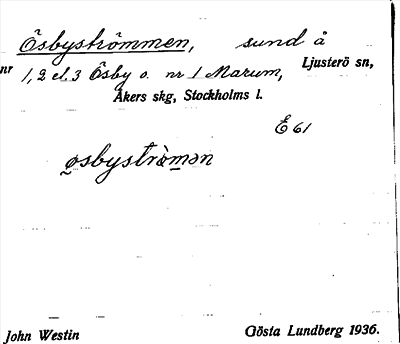 Ösbyströmmen, sund å
nr 1, 2 el. 3 Ösby o. nr 1 Marum, Ljusterö sn,
Åkers skg, Stockholms l.
E 61
John Westin Gösta Lundberg 1936.